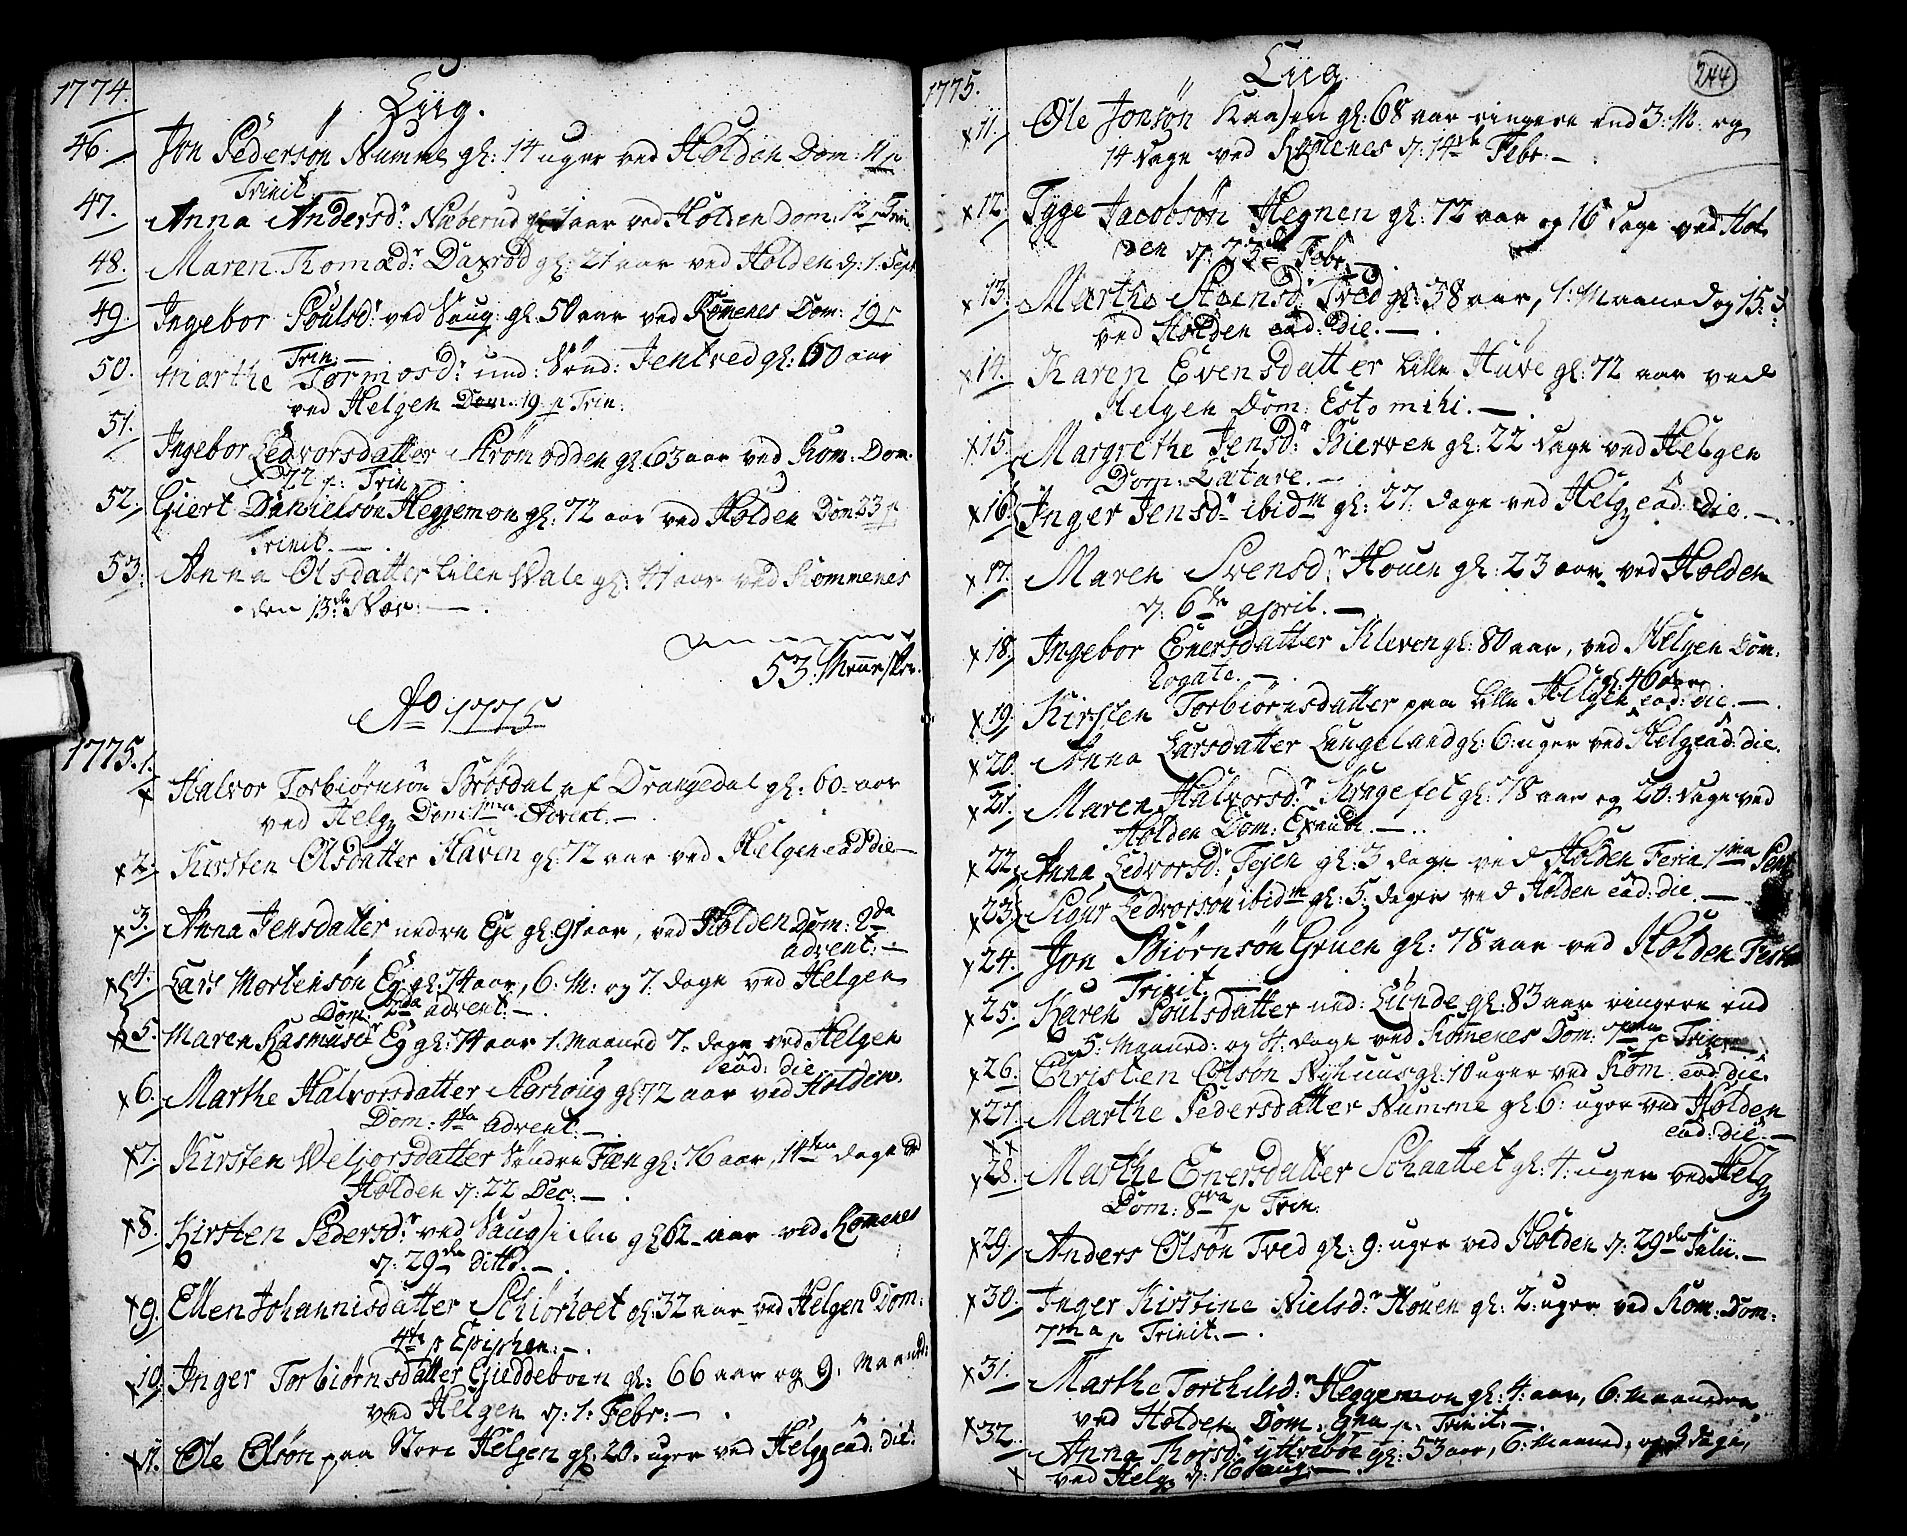 1774.
Liig.
46. Jon Pedersøn Numme gl: 14 uger ved Holden Dom: 11 p
Trinit.
47. Anna Andersd: Næberud gl: aar ved Holden Dom: 12 p Trin
48. Maren Thomæd: Daxrød gl: 21 aar ved Holden d: 1. Sept
49. Ingebor Poulsd: ved Saug: gl. 50 aar ved Romenes Dom: 19 p
Trin:
50. Marthe Tormosd: und: Sønd: Jentved gl: 60 aar
ved Helgen Dom: 19. p Trin:
51. Ingebor Ledvorsdatter Strømodden gl: 63 aar ved Rom: Dom:
22 p: Trin
52. Giert Danielsøn Heggemon gl: 72 aar ved Holden Dom 23 p
Trinit.
53. Anna Olsdatter lille Wale gl: 41 aar ved Rommenes
den 13de Nov:
53. Mennesker.
Ao 1775
1775. 1. Halvor Torbiørnsøn Brøsdal af Drangedal gl: 60 aar
ved Helg Dom: 1ma Advent.
2. Kirsten Olsdatter Haven gl: 72 aar ved Helgen ead: die
3. Anna Jensdatter nedre Eje gl: 91 aar, ved Holden Dom: 2da
advent.
4. Lars Mortensøn Eg gl: 74 aar, 6. M: og 7. dage ved Helgen
Dom: 2da advent.
5. Maren Rasmusdr Eg gl: 74 aar 1. Maaned 7. dage ved Helgen
ead: die
6. Marthe Halvorsdatter Aarhoug gl: 72 aar ved Holden.
Dom: 4ta advent.
7. Kirsten Weljorsdatter Søndre Fæn gl: 76 aar, 14ten dage
Holden d: 22 Dec:
8. Kirsten Pedersdr ved Saugsilen gl 62 aar ved Romenes
d: 29de ditto.
9. Ellen Johannisdatter Schilorhoet gl: 32 aar ved Helgen Dom:
4te p Epiphan:
10. Inger Torbiørnsdatter Gieddeboen gl: 66 aar og 9. Maaned:
ved Helgen d: 1. Febr:
11. Ole Olsøn paa Store Helgen gl. 20. uger ved Helg ead: die.
1775. Liig 244
11. Ole Jonsøn Kaasen gl: 68 aar ringere end 3: M: og
14 dage ved Romenes d: 14de Febr:
12. Tÿge Jacobsøn Hegnen gl: 72 aar og 16 dage ved Hol
den d: 23de Febr.
13. Marthe Steensdr Tved gl: 38 aar, 1. Maaned og 15. d:
ved Holden ead: die.
14. Karen Evensdatter lille Huve gl: 72 aar ved
Helgen Dom: Estomihi.
15. Margrethe Jensdr Bierven gl: 22 dage ved Helgen
Dom: Lætare.
16. Inger Jensdr ibidm gl: 27. dage ved Helg ead: die.
17. Maren Svensdr Houen gl: 23 aar, ved Holden
d: 6te april.
18. Ingebor Enersdatter Kleven gl: 80 aar, ved Helgen Dom:
Rogate.
gl. 46 aar
19. Kirsten Torbiørnsdatter paa lille Helgen ead: die.
20. Anna Larsdatter Langeland gl: 6: uger ved Helg ead: die.
21. Maren Halvorsdr Kragefet gl: 78 aar og 20: dage ved
Holden Dom: Exaudi.
22. Anna Ledvorsdr Tejen gl: 3 dage ved Holden Feria 1ma Pent
23. Sigur Ledvorsøn ibidm gl: 5. dage ved Holden ead: die.
24. Jon Biørnsøn Gruen gl: 78 aar ved Holden Festo
Trinit.
25. Karen Poulsdatter ned: Lunde gl: 83 aar ringere end
5. Maaned: og 4: dage ved Romenes Dom: 1ma p Trin
26. Christen Olsøn Nÿhuus gl: 10 uger ved Rom. ead: die.
27. Marthe Pedersdatter Numme gl 6: uger ved Holden
ead: die.
28. Marthe Enersdatter Schaattet gl: 4: uger ved Helg
Dom: 8va p Trin:
29. Anders Olsøn Tved gl: 9: uger ved Holden d: 29de Julii.
30. Inger Kirstine Nielsdr Houen gl: 2: uger ved Rom: Dom:
7ma p Trinit.
31. Marthe Torchilsdr Heggemon gl: 4: aar, 6: Maaneder
ved Holden Dom: 9na p. Trinit.
32. Anna Thorsdr ÿttrebøe gl: 53 aar, 6: Maaned, og 9 dage,
ved Helg d: 16 aug: